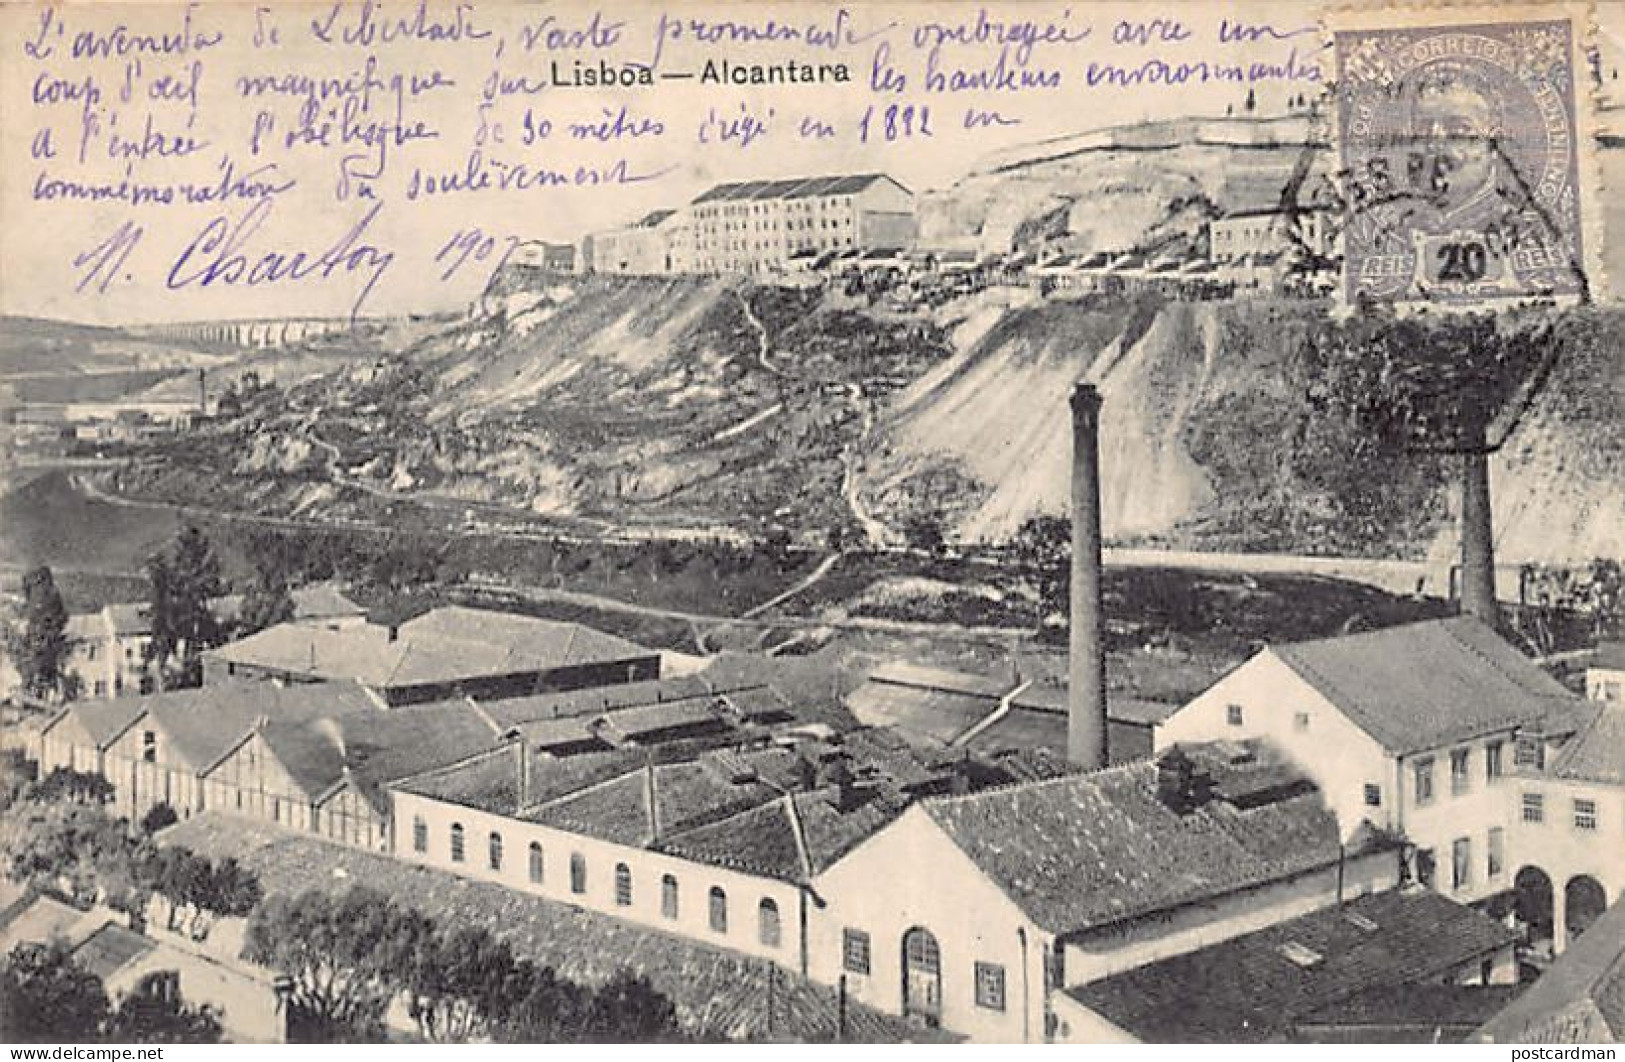 L'avenida de Libertade, vaste promenade ombragée avec un
coup d'œil magnifique sur les hauteurs environnantes
Lisboa — Alcantara
A l'entrée, l'obélisque de 30 mètres érigé en 1882 en
commémoration du soulèvement
M. Chartoy 1907
CORREIOS
REIS 20 REIS
postcardman